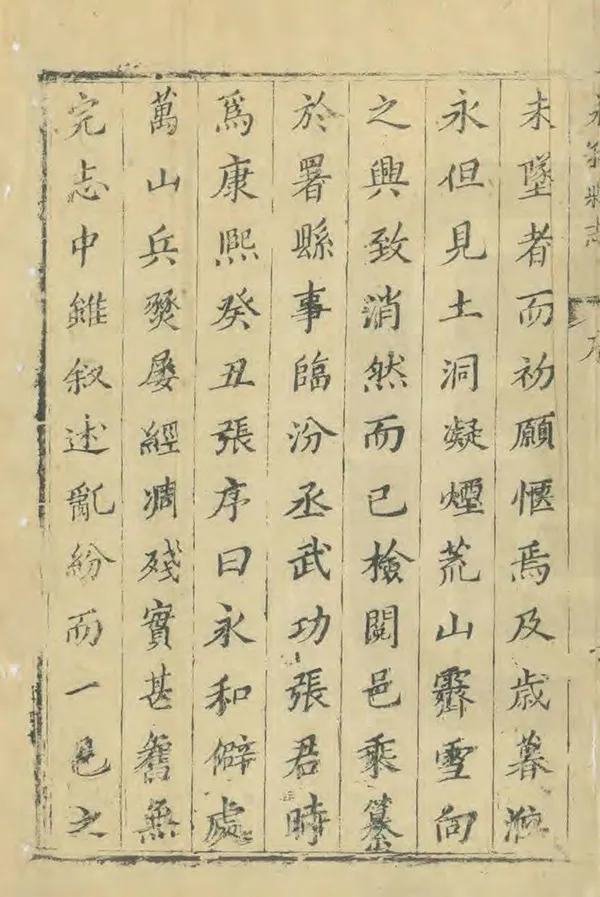 未墜者而初願愜焉及歲暮涖
永但見土洞凝煙荒山霽雪向
之興致消然而已檢閱邑乘纂
於署縣事臨汾丞武功張君時
爲康熙癸丑張序曰永和僻處
萬山兵燹屢經凋殘實甚舊無
完志中雖叙述亂紛而一邑之